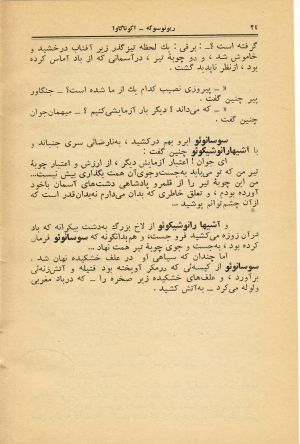 ۲۴ ریونوسوکه ـ آکوتاگاوا
گرفته است ؟ـ : برقی : یك لحظه تیزگذر زیر آفتاب درخشید و
خاموش شد ، و دو چوبهٔ تیر ، درآسمانی که از باد آماس کرده
بود ، ازنظر ناپدید گشت .
« ـ پیروزی نصیب کدام یك از ما شده است ؟ـ جنگاور
پیر چنین گفت .
« ـ که می‌داند ؟ دیگر بار آزمایشی‌کنیم ؟ ـ میهمان‌جوان
چنین گفت .
سوسانوئو ابرو بهم درکشید ، به‌نارضائی سری جنباند و
با آشیهارانوشیکوئو چنین گفت :
ای جوان ! اعتبار آزمایش دیگر ، از ارزش و اعتبار چوبهٔ
تیر من که تو می‌باید به‌جست‌وجوی‌آن همت گماری بیش نیست...
من این چوبهٔ تیر را از قلمرو پادشاهی دشت‌های آسمان باخود
آورده بودم ، و تعلق خاطری که بدان می‌دارم نه‌بدان‌قدر است که
از آن چشم‌توانم پوشید ...
و آشیها رانوشیکوئو از لاخ بزرگ به‌دشت بیکرانه که باد
درآن زوزه می‌کشید فرو جست ، و هم‌بدانگونه که سوسانوئو فرمان
کرده بود ، به‌جست و جوی چوبهٔ تیر همت نهاد ...
اما چندان که سیاهی او در علف خشکیده نهان شد .
سوسانوئو از کیسه‌ئی که برکمر آویخته بود فتیله و آتش‌زنه‌ئی
برآورد ، و علف‌های خشکیده زیر صخره را ـ که درباد مغربی
ولوله می‌کرد ـ به‌آتش کشید .